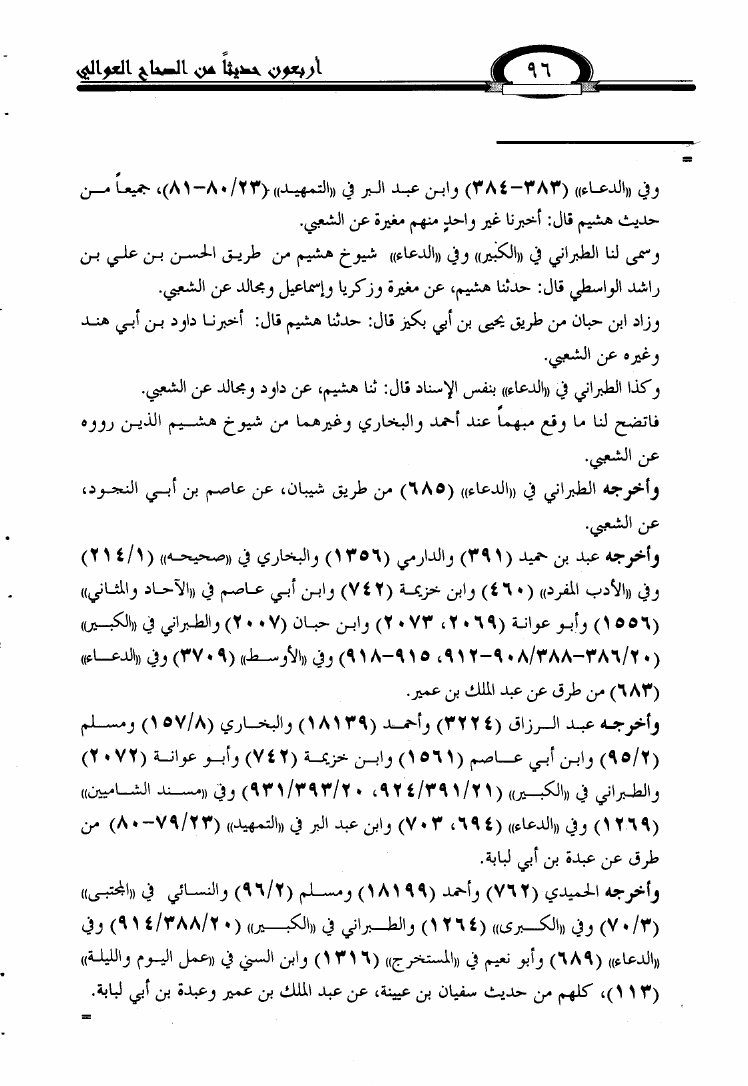 ٩٦
أربعون حديثاً من الصحاح العوالي
=
وفي «الدعاء» (٣٨٣-٣٨٤) وابن عبد البر في «التمهيد» (٢٣/٨٠-٨١)، جميعاً من
حديث هشيم قال: أخبرنا غير واحدٍ منهم مغيرة عن الشعبي.
وسمى لنا الطبراني في «الكبير» وفي «الدعاء» شيوخ هشيم من طريق الحسن بن علي بن
راشد الواسطي قال: حدثنا هشيم، عن مغيرة وزكريا وإسماعيل ومجالد عن الشعبي.
وزاد ابن حبان من طريق يحيى بن أبي بكيز قال: حدثنا هشيم قال: أخبرنا داود بن أبي هند
وغيره عن الشعبي.
وكذا الطبراني في «الدعاء» بنفس الإسناد قال: ثنا هشيم، عن داود ومجالد عن الشعبي.
فاتضح لنا ما وقع مبهماً عند أحمد والبخاري وغيرهما من شيوخ هشيم الذين رووه
عن الشعبي.
وأخرجه الطبراني في «الدعاء» (٦٨٥) من طريق شيبان، عن عاصم بن أبي النجود،
عن الشعبي.
وأخرجه عبد بن حميد (٣٩١) والدارمي (١٣٥٦) والبخاري في «صحيحه» (٢١٤/١)
وفي «الأدب المفرد» (٤٦٠) وابن خزيمة (٧٤٢) وابن أبي عاصم في «الآحاد والمثاني»
(١٥٥٦) وأبو عوانة (٢٠٦٩، ٢٠٧٣) وابن حبان (٢٠٠٧) والطبراني في «الكبير»
(٢٠/٣٨٦-٣٨٨/٩٠٨-٩١٢، ٩١٥-٩١٨) وفي «الأوسط» (٣٧٠٩) وفي «الدعاء»
(٦٨٣) من طرق عن عبد الملك بن عمير.
وأخرجه عبد الرزاق (٣٢٢٤) وأحمد (١٨١٣٩) والبخاري (١٥٧/٨) ومسلم
(٩٥/٢) وابن أبي عاصم (١٥٦١) وابن خزيمة (٧٤٢) وأبو عوانة (٢٠٧٢)
والطبراني في «الكبير» (٢١/٣٩١/٩٢٤، ٢٠/٣٩٣/٩٣١) وفي «مسند الشاميين»
(١٢٦٩) وفي «الدعاء» (٦٩٤، ٧٠٣) وابن عبد البر في «التمهيد» (٢٣/٧٩-٨٠) من
طرق عن عبدة بن أبي لبابة.
وأخرجه الحميدي (٧٦٢) وأحمد (١٨١٩٩) ومسلم (٩٦/٢) والنسائي في «المجتبى»
(٧٠/٣) وفي «الكبرى» (١٢٦٤) والطبراني في «الكبير» (٢٠/٣٨٨/٩١٤) وفي
«الدعاء» (٦٨٩) وأبو نعيم في «المستخرج» (١٣١٦) وابن السني في «عمل اليوم والليلة»
(١١٣)، كلهم من حديث سفيان بن عيينة، عن عبد الملك بن عمير وعبدة بن أبي لبابة.
=